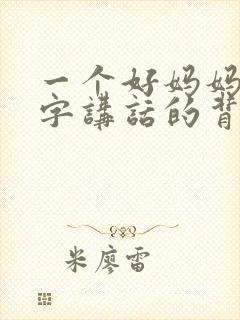 一个好妈妈
字講話的背
米廖雷